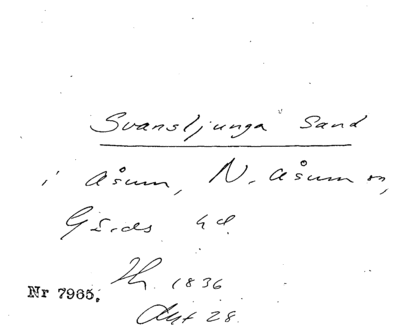 Svansljunga Sand
i Åsum, N. Åsum sn,
Gärds hd.
Hr 1836
Akt 28
Nr 7965.